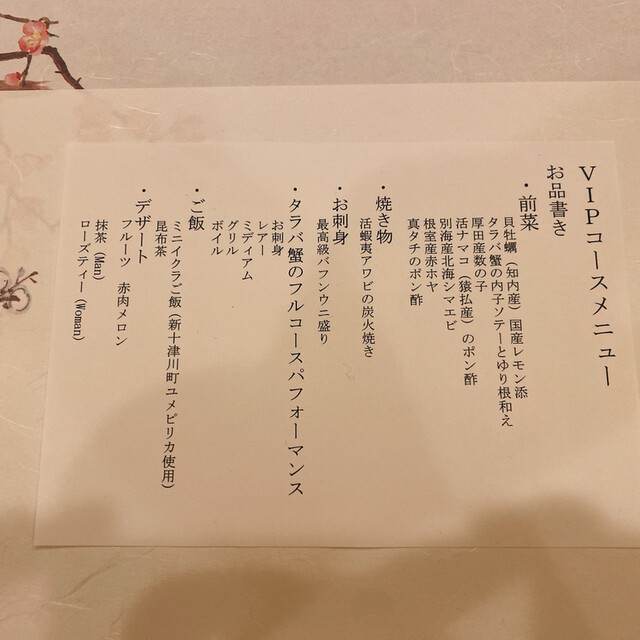 VIPコースメニュー
お品書き
・前菜
貝牡蠣(知内産)国産レモン添
タラバ蟹の内子ソテーとゆり根和え
厚田産数の子
活ナマコ(猿払産)のポン酢
別海産北海シマエビ
根室産赤ホヤ
真タチのポン酢
・焼き物
活蝦夷アワビの炭火焼き
・お刺身
最高級バフンウニ盛り
・タラバ蟹のフルコースパフォーマンス
お刺身
レアー
ミディアム
グリル
ボイル
・ご飯
ミニイクラご飯(新十津川町ユメピリカ使用)
昆布茶
・デザート
フルーツ 赤肉メロン
抹茶(Man)
ローズティー(Woman)